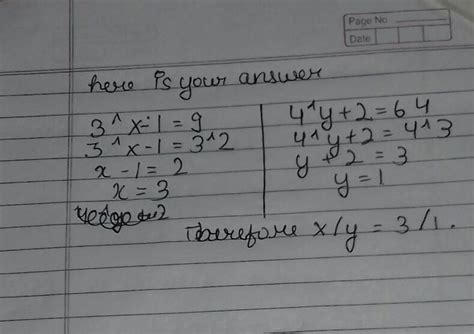 Page No
Date
here is your answer
3^x-1 = 9
3^x-1 = 3^2
x-1 = 2
x = 3
4^y+2 = 64
4^y+2 = 4^3
y+2 = 3
y = 1
Therefore x/y = 3/1.